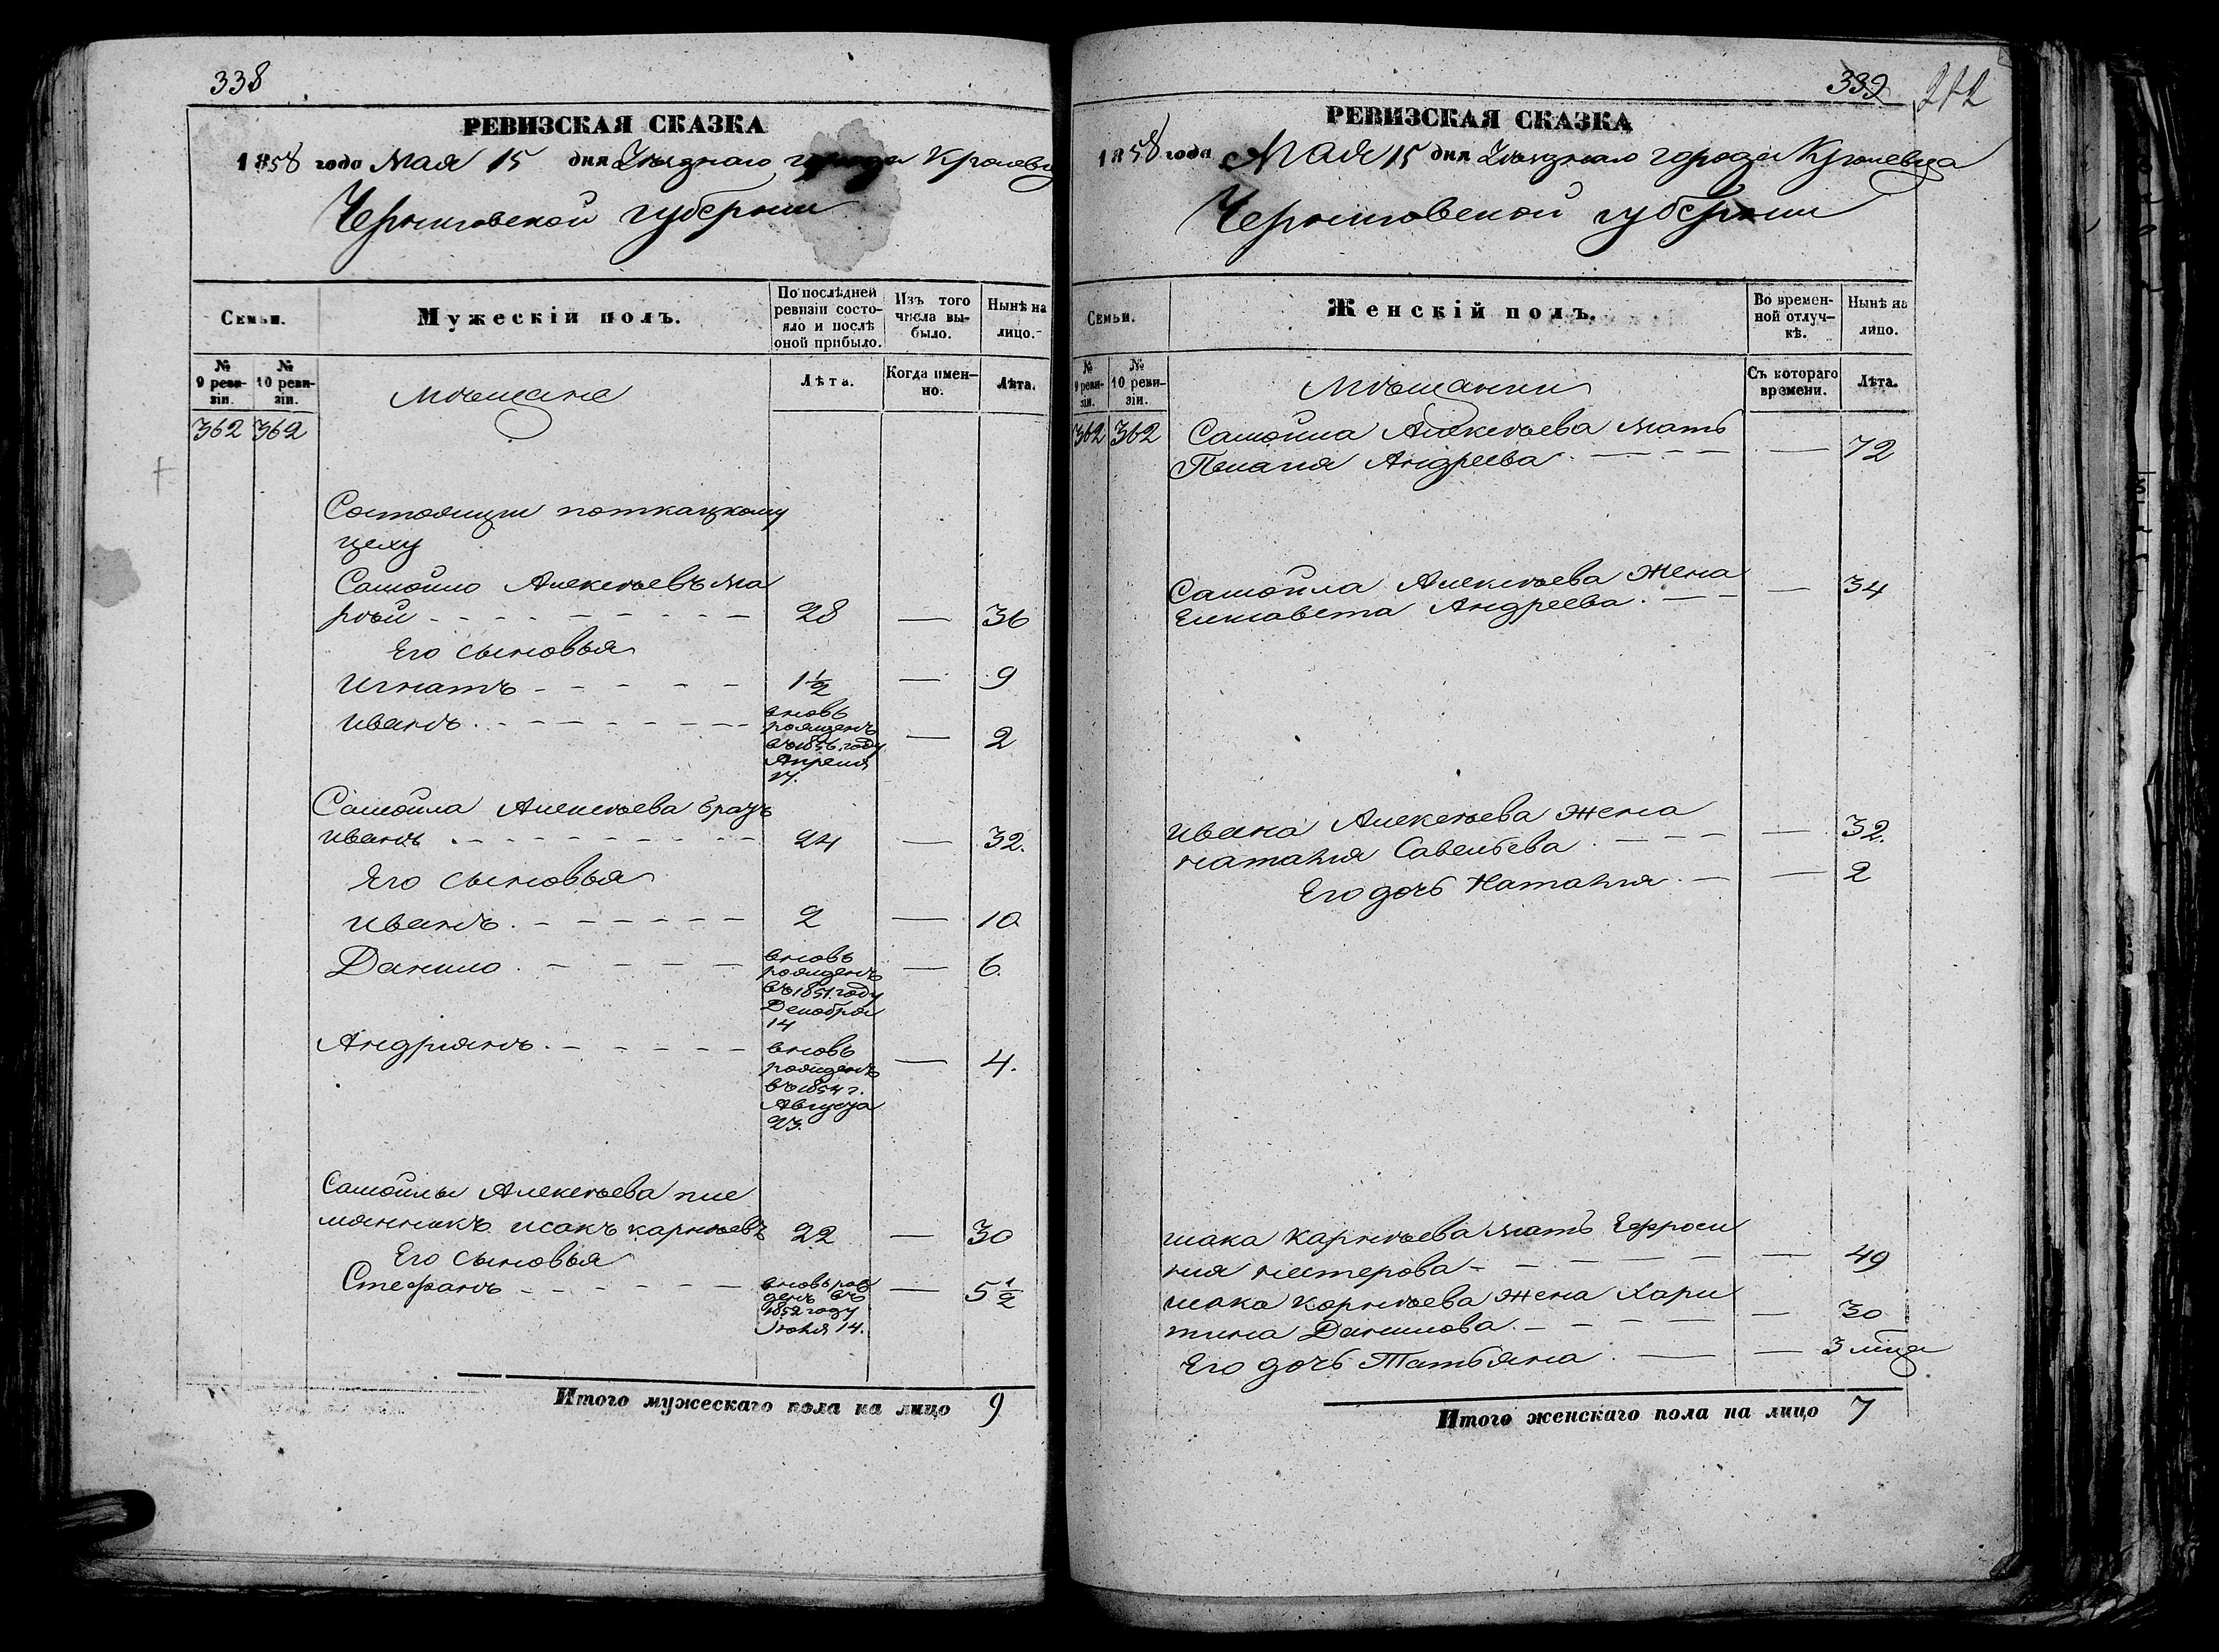 338
РЕВИЗСКАЯ СКАЗКА
1858 года Мая 15 дня Уѣзднаго города Кролевц
Черниговской губернии
Семьи.
Мужескій полъ.
По послѣдней ревизіи состояло и послѣ оной прибыло.
Изъ того числа выбыло.
Нынѣ на лицо.
№ 9 ревизіи.
№ 10 ревизіи.
Мѣщане
Лѣта.
Когда именно.
Лѣта.
362 362
Состоящие поткацкому
цеху
Самойло Алексѣевъ ма
рой 28 — 36
Его сыновья
Игнатъ 1½ — 9
Иванъ — 2
вновь
рожденъ
въ 1856 году
Апреля
17.
Самойла Алексѣева братъ
Иванъ 24 — 32.
Его сыновья
Иванъ 2 — 10
Данило — 6.
вновь
рожденъ
въ 1851 году
Декабря
14
Андриянъ — 4.
вновь
рожденъ
въ 1854 г.
Августа
23.
Самойлы Алексѣева пле
мянникъ Исакъ Карнѣевъ 22 — 30
Его сыновья
Стефанъ — 5½
вновь рож
денъ въ
1852 году
Июня 14.
Итого мужескаго пола на лицо 9
339 212
РЕВИЗСКАЯ СКАЗКА
1858 года Мая 15 дня Уѣзднаго города Кролевца
Черниговской губернии
Семьи.
Женскій полъ.
Во временной отлучкѣ.
Нынѣ на лицо.
№ 9 ревизіи.
№ 10 ревизіи.
Мѣщанки
Съ котораго времени.
Лѣта.
362 362
Самойла Алексѣева мать
Пелагия Андреева — 72
Самойла Алексѣева жена
Елисавета Андреева — 34
Ивана Алексѣева жена
Наталия Савельева — 32.
Его дочь Наталия — 2
Исака Карнѣева мать Ефроси
ния Нестерова — 49
Исака Карнѣева жена Хари
тина Данилова — 30
Его дочь Татьяна — 3 мѣца
Итого женскаго пола на лицо 7